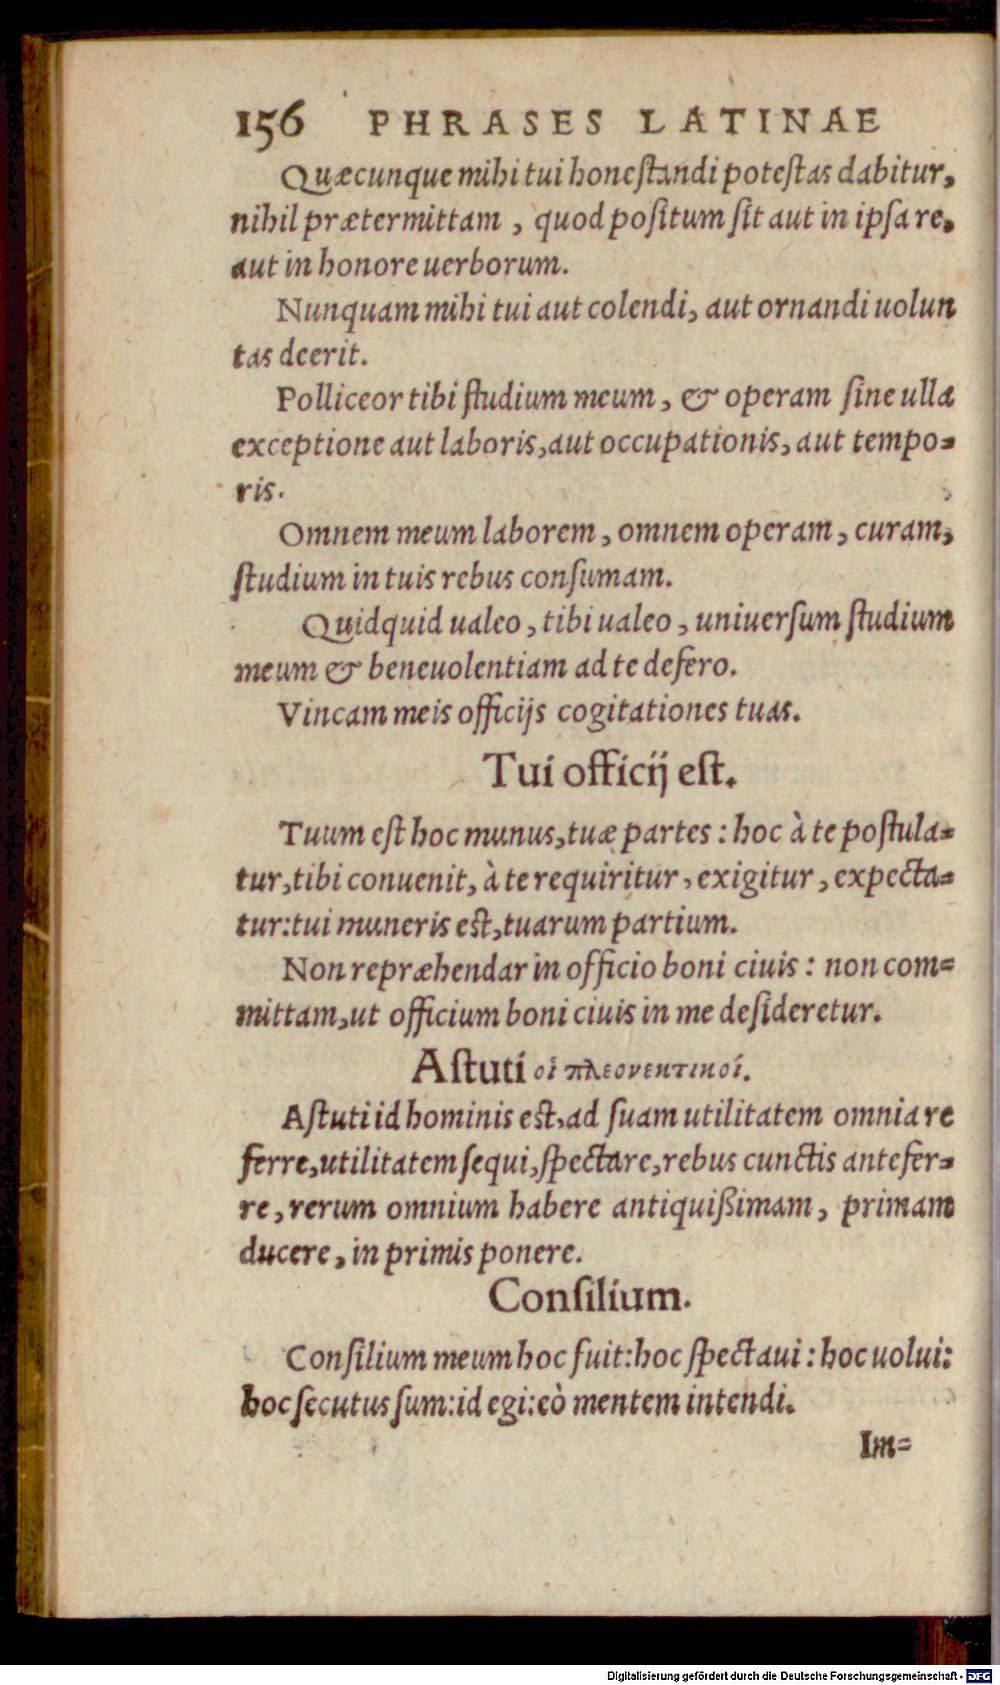 156 PHRASES LATINAE
Quæcunque mihi tui honeſtandi poteſtas dabitur,
nihil prætermittam , quod poſitum ſit aut in ipſa re,
aut in honore uerborum.
Nunquam mihi tui aut colendi, aut ornandi uolun
tas deerit.
Polliceor tibi ſtudium meum, & operam ſine ulla
exceptione aut laboris, aut occupationis, aut tempo=
ris.
Omnem meum laborem, omnem operam, curam,
ſtudium in tuis rebus conſumam.
Quidquid ualeo, tibi ualeo, uniuerſum ſtudium
meum & beneuolentiam ad te defero.
Vincam meis officijs cogitationes tuas.
Tui officij eſt.
Tuum eſt hoc munus, tuæ partes: hoc à te poſtula=
tur, tibi conuenit, à te requiritur, exigitur, expecta=
tur: tui muneris eſt, tuarum partium.
Non repræhendar in officio boni ciuis: non com=
mittam, ut officium boni ciuis in me deſideretur.
Aſtuti οἱ πλεονεκτικοί.
Aſtuti id hominis eſt, ad ſuam utilitatem omnia re
ferre, utilitatem ſequi, ſpectare, rebus cunctis antefer=
re, rerum omnium habere antiquißimam, primam
ducere, in primis ponere.
Conſilium.
Conſilium meum hoc fuit: hoc ſpectaui: hoc uolui:
hoc ſecutus ſum: id egi: eò mentem intendi.
Im=
Digitalisierung gefördert durch die Deutsche Forschungsgemeinschaft - DFG